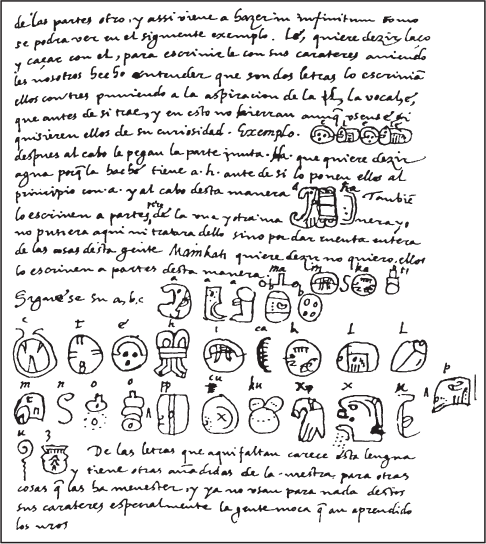 de las partes otro, y assi viene a hazer in infinitum como
se podra ver en el siguiente exemplo. Lé, quiere dezir laço
y caçar con el, para escrivirle con sus carateres aviendo
les nosotros hecho entender que son dos letras lo escrivian
ellos con tres puniendo a la aspiracion de la l, la vocal é,
que antes de si trae, y en esto no hierran aunq̃ usense si
quisieren ellos de su curiosidad. Exemplo.
despues al cabo le pegan la parte junta. Ha. que quiere dezir
agua porq̃ la haché tiene a. h. ante de si lo ponen ellos al
principio con .a. y al cabo desta manera a ha Tambiē
lo escriven a partes, pero de la una y otra ma nera, yo
no pusiera aqui ni tratara dello sino por dar cuenta entera
de las cosas desta gente Mainkati quiere dezir no quiero, ellos
lo escriven a partes desta manera: ma i n ka ti
Siguese su a, b, c a a a b b
c t é h i ca k l l
m n o o pp p cu ku x x u
u z De las letras que aqui faltan carece esta lengua
y tiene otras añadidas de la nuestra para otras
cosas q̃ las ha menester, y ya no usan para nada destos
sus carateres especialmente la gente moça q̃ an aprendido
los nros